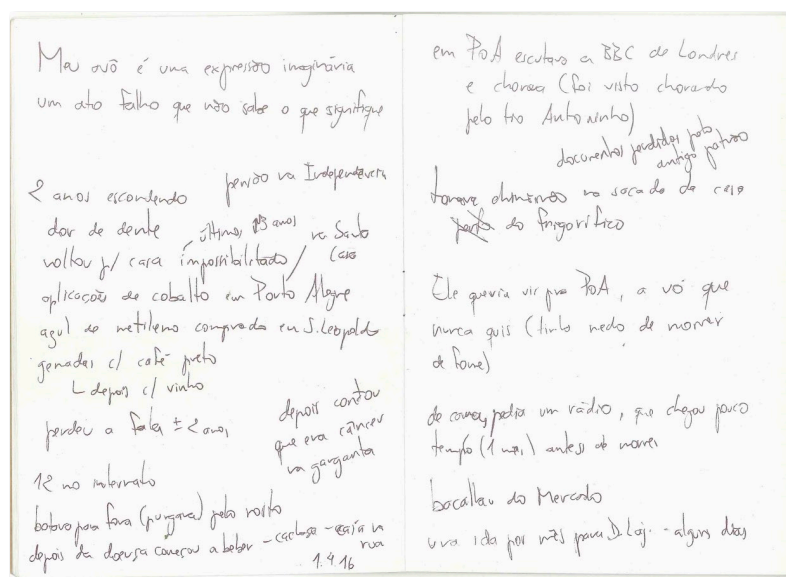 Meu avô é uma expressão imaginária
um ato falho que não sabe o que signifique
2 anos escondendo
pensão na Independência
dor de dente
últimos 3 anos
na Santa
Casa
voltou p/ casa impossibilitado /
aplicação de cobalto em Porto Alegre
azul de metileno comprado em S. Leopoldo
gemadas c/ café preto
depois c/ vinho
perdeu a fala ± 2 anos
depois contou
que era câncer
na garganta
12 no internato
botava para fora (purgava) pelo rosto
depois da doença começou a beber - cachaça - caía na
rua
1.4.16
em PoA escutava a BBC de Londres
e chorava (foi visto chorando
pelo tio Antoninho)
documentos perdidos pelo
antigo patrão
tomava chimarrão na sacada da casa
do frigorífico
Ele queria vir pra PoA, a vó que
nunca quis (tinha medo de morrer
de fome)
pedia um rádio, que chegou pouco
tempo (1 mês) antes de morrer
bacalhau do Mercado
uma ida por mês para D. - alguns dias